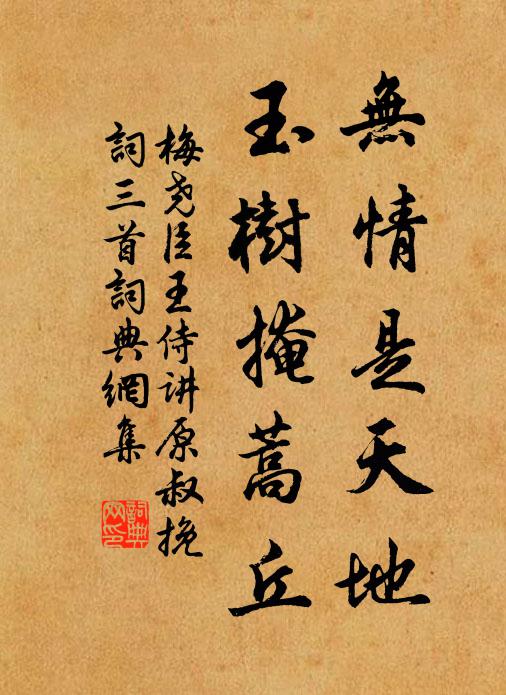 無情是天地
玉樹掩蒿丘
梅尧臣王侍讲原叔挽
詞三首詞典網集
詞典
网印